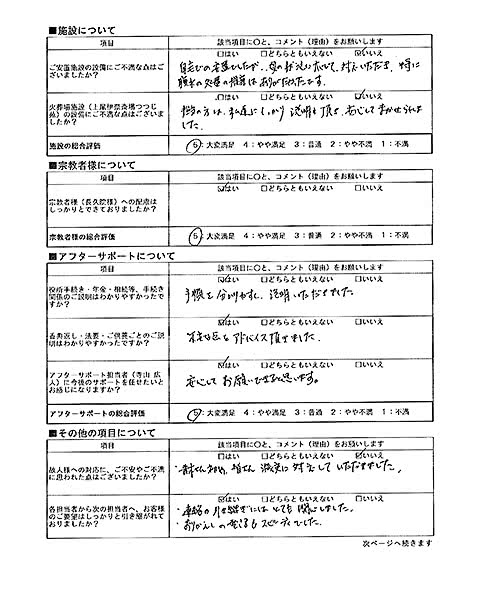 ■施設について
項目 該当項目に〇と、コメント（理由）をお願いします
□はい □どちらともいえない ☑いいえ
ご安置施設の設備にご不満な点はご
ざいましたか？
□はい □どちらともいえない ☑いいえ
火葬場施設（上尾伊奈斎場つつじ
苑）の設備にご不満な点はございま
したか？
施設の総合評価 5：大変満足 4：やや満足 3：普通 2：やや不満 1：不満
■宗教者様について
項目 該当項目に〇と、コメント（理由）をお願いします
☑はい □どちらともいえない □いいえ
宗教者様（長久院様）への配慮は
しっかりとできておりましたか？
宗教者様の総合評価 5：大変満足 4：やや満足 3：普通 2：やや不満 1：不満
■アフターサポートについて
項目 該当項目に〇と、コメント（理由）をお願いします
☑はい □どちらともいえない □いいえ
役所手続き・年金・相続等、手続き
関係のご説明はわかりやすかったで
すか？
手順を分りやすく、説明いただきました。
☑はい □どちらともいえない □いいえ
香典返し・法要・ご供養ごとのご説
明はわかりやすかったですか？
アドバイス頂きました。
☑はい □どちらともいえない □いいえ
アフターサポート担当者（寺山 広
人）に今後のサポートを任せたいと
お感じになりますか？
安心してお願いできると思います。
アフターサポートの総合評価 5：大変満足 4：やや満足 3：普通 2：やや不満 1：不満
■その他の項目について
項目 該当項目に〇と、コメント（理由）をお願いします
□はい □どちらともいえない ☑いいえ
故人様への対応に、ご不安やご不満
に思われた点はございましたか？
皆さん 誠実に対応していただきました。
☑はい □どちらともいえない □いいえ
各担当者から次の担当者へ、お客様
のご要望はしっかりと引き継がれて
おりましたか？
・連絡の引き継ぎにはとても感心しました。
スピーディでした。
次ページへ続きます